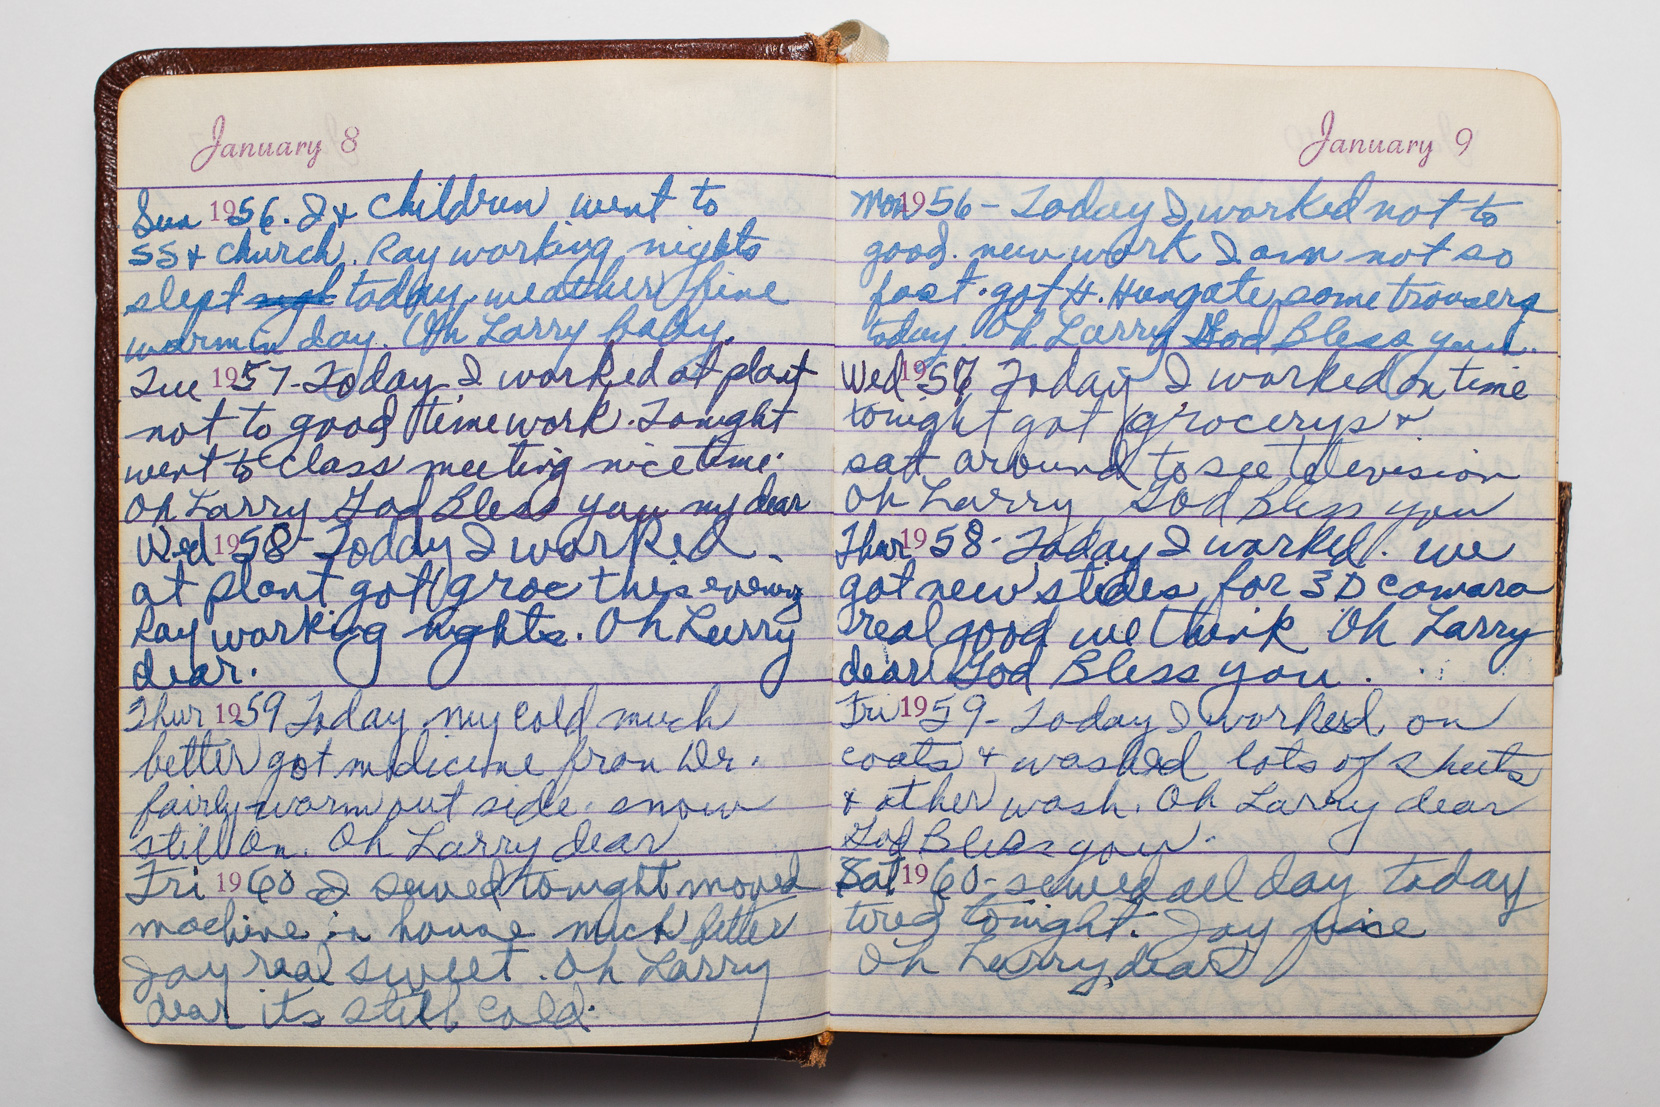 January 8
Sun 1956. I & children went to
SS & church. Ray working nights
slept today. weather fine
warm day. Oh Larry baby.
Tue 1957- Today I worked at plant
not to good time work. Tonight
went to class meeting nice time.
Oh Larry God Bless you my dear
Wed 1958- Today I worked.
at plant got groc this evening
Ray working nights. Oh Larry
dear.
Thur 1959 Today my cold much
better got medicine from Dr.
fairly warm out side. snow
still on. Oh Larry dear
Fri 1960 I sewed tonight moved
machine in house much better
Jay real sweet. Oh Larry
dear its still cold.
January 9
Mon 1956- Today I worked not to
good. new work I am not so
fast. got H. Hungate some trousers
today. Oh Larry God Bless you.
Wed 1957 Today I worked on time
tonight got grocerys &
sat around to see television
Oh Larry God Bless you
Thur 1958- Today I worked. we
got new slides for 3D camara
real good we think Oh Larry
dear God Bless you.
Fri 1959- Today I worked on
coats & washed lots of sheets
& other wash. Oh Larry dear
God Bless you.
Sat 1960- sewed all day today
tired tonight. Jay fine
Oh Larry dear